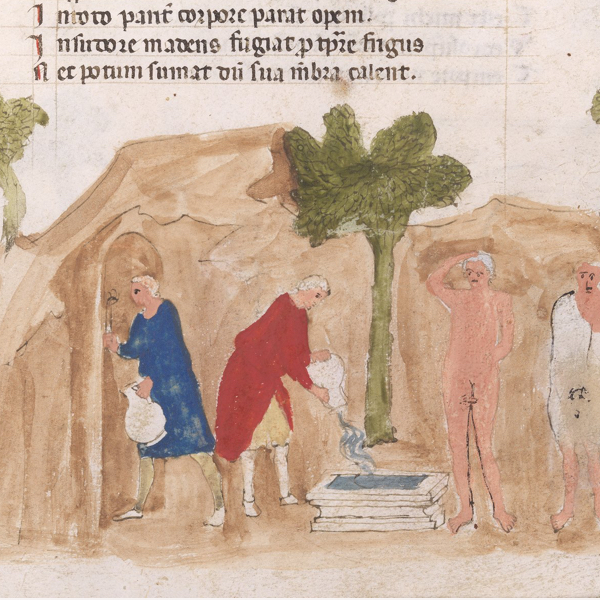 I ntoto parit̄ corpore parat opem.
I nsudore madens fugiat ꝓ tp̄re frigus
N ec potum sumat dū sua m̄bra calent.